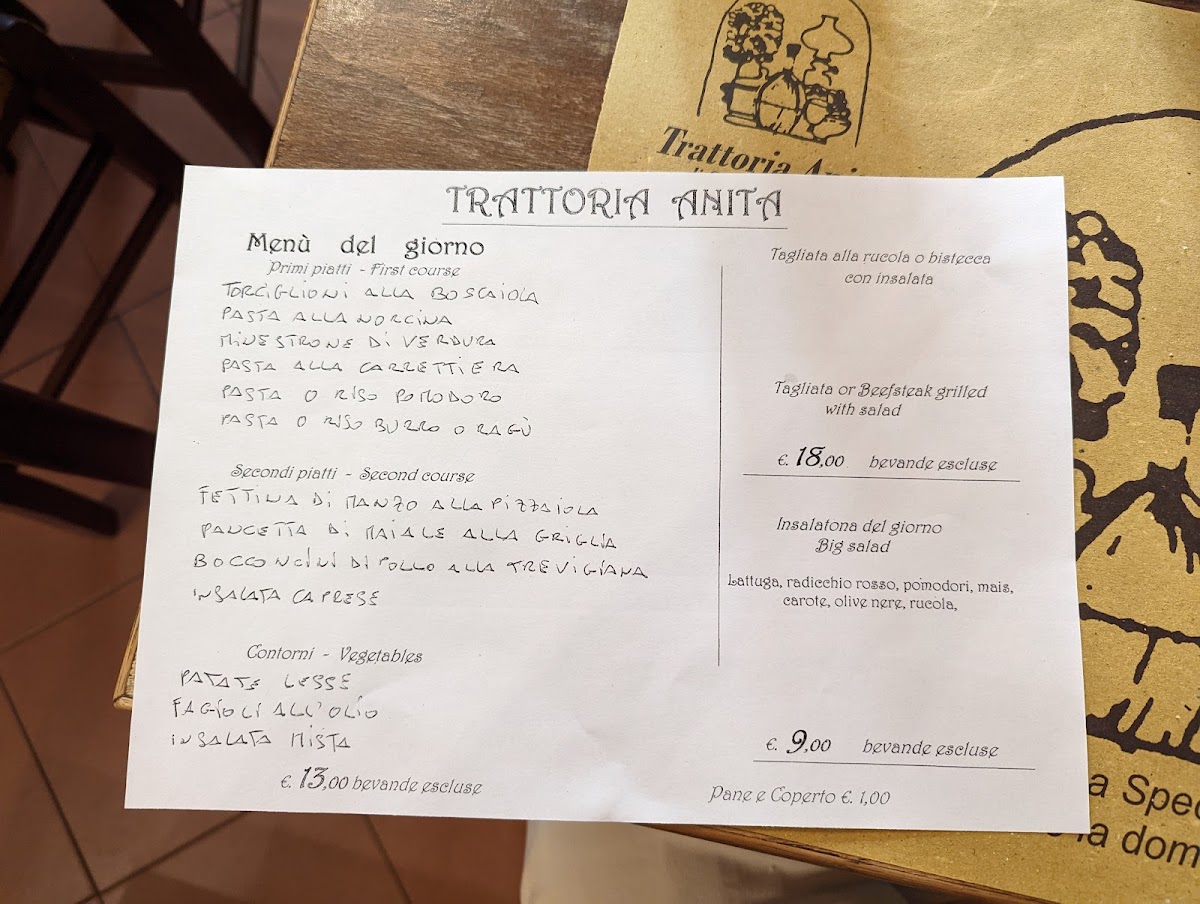 Trattoria Ani
TRATTORIA ANITA
Menù del giorno
Primi piatti - First course
TORCIGLIONI ALLA BOSCAIOLA
PASTA ALLA NORCINA
MINESTRONE DI VERDURA
PASTA ALLA CARRETTIERA
PASTA O RISO POMODORO
PASTA O RISO BURRO O RAGÙ
Secondi piatti - Second course
FETTINA DI MANZO ALLA PIZZAIOLA
PANCETTA DI MAIALE ALLA GRIGLIA
BOCCONCINI DI POLLO ALLA TREVIGIANA
INSALATA CAPRESE
Contorni - Vegetables
PATATE LESSE
FAGIOLI ALL'OLIO
INSALATA MISTA
€. 13,00 bevande escluse
Tagliata alla rucola o bistecca
con insalata
Tagliata or Beefsteak grilled
with salad
€. 18,00 bevande escluse
Insalatona del giorno
Big salad
Lattuga, radicchio rosso, pomodori, mais,
carote, olive nere, rucola,
€. 9,00 bevande escluse
Pane e Coperto €. 1,00
a Spe
la dom